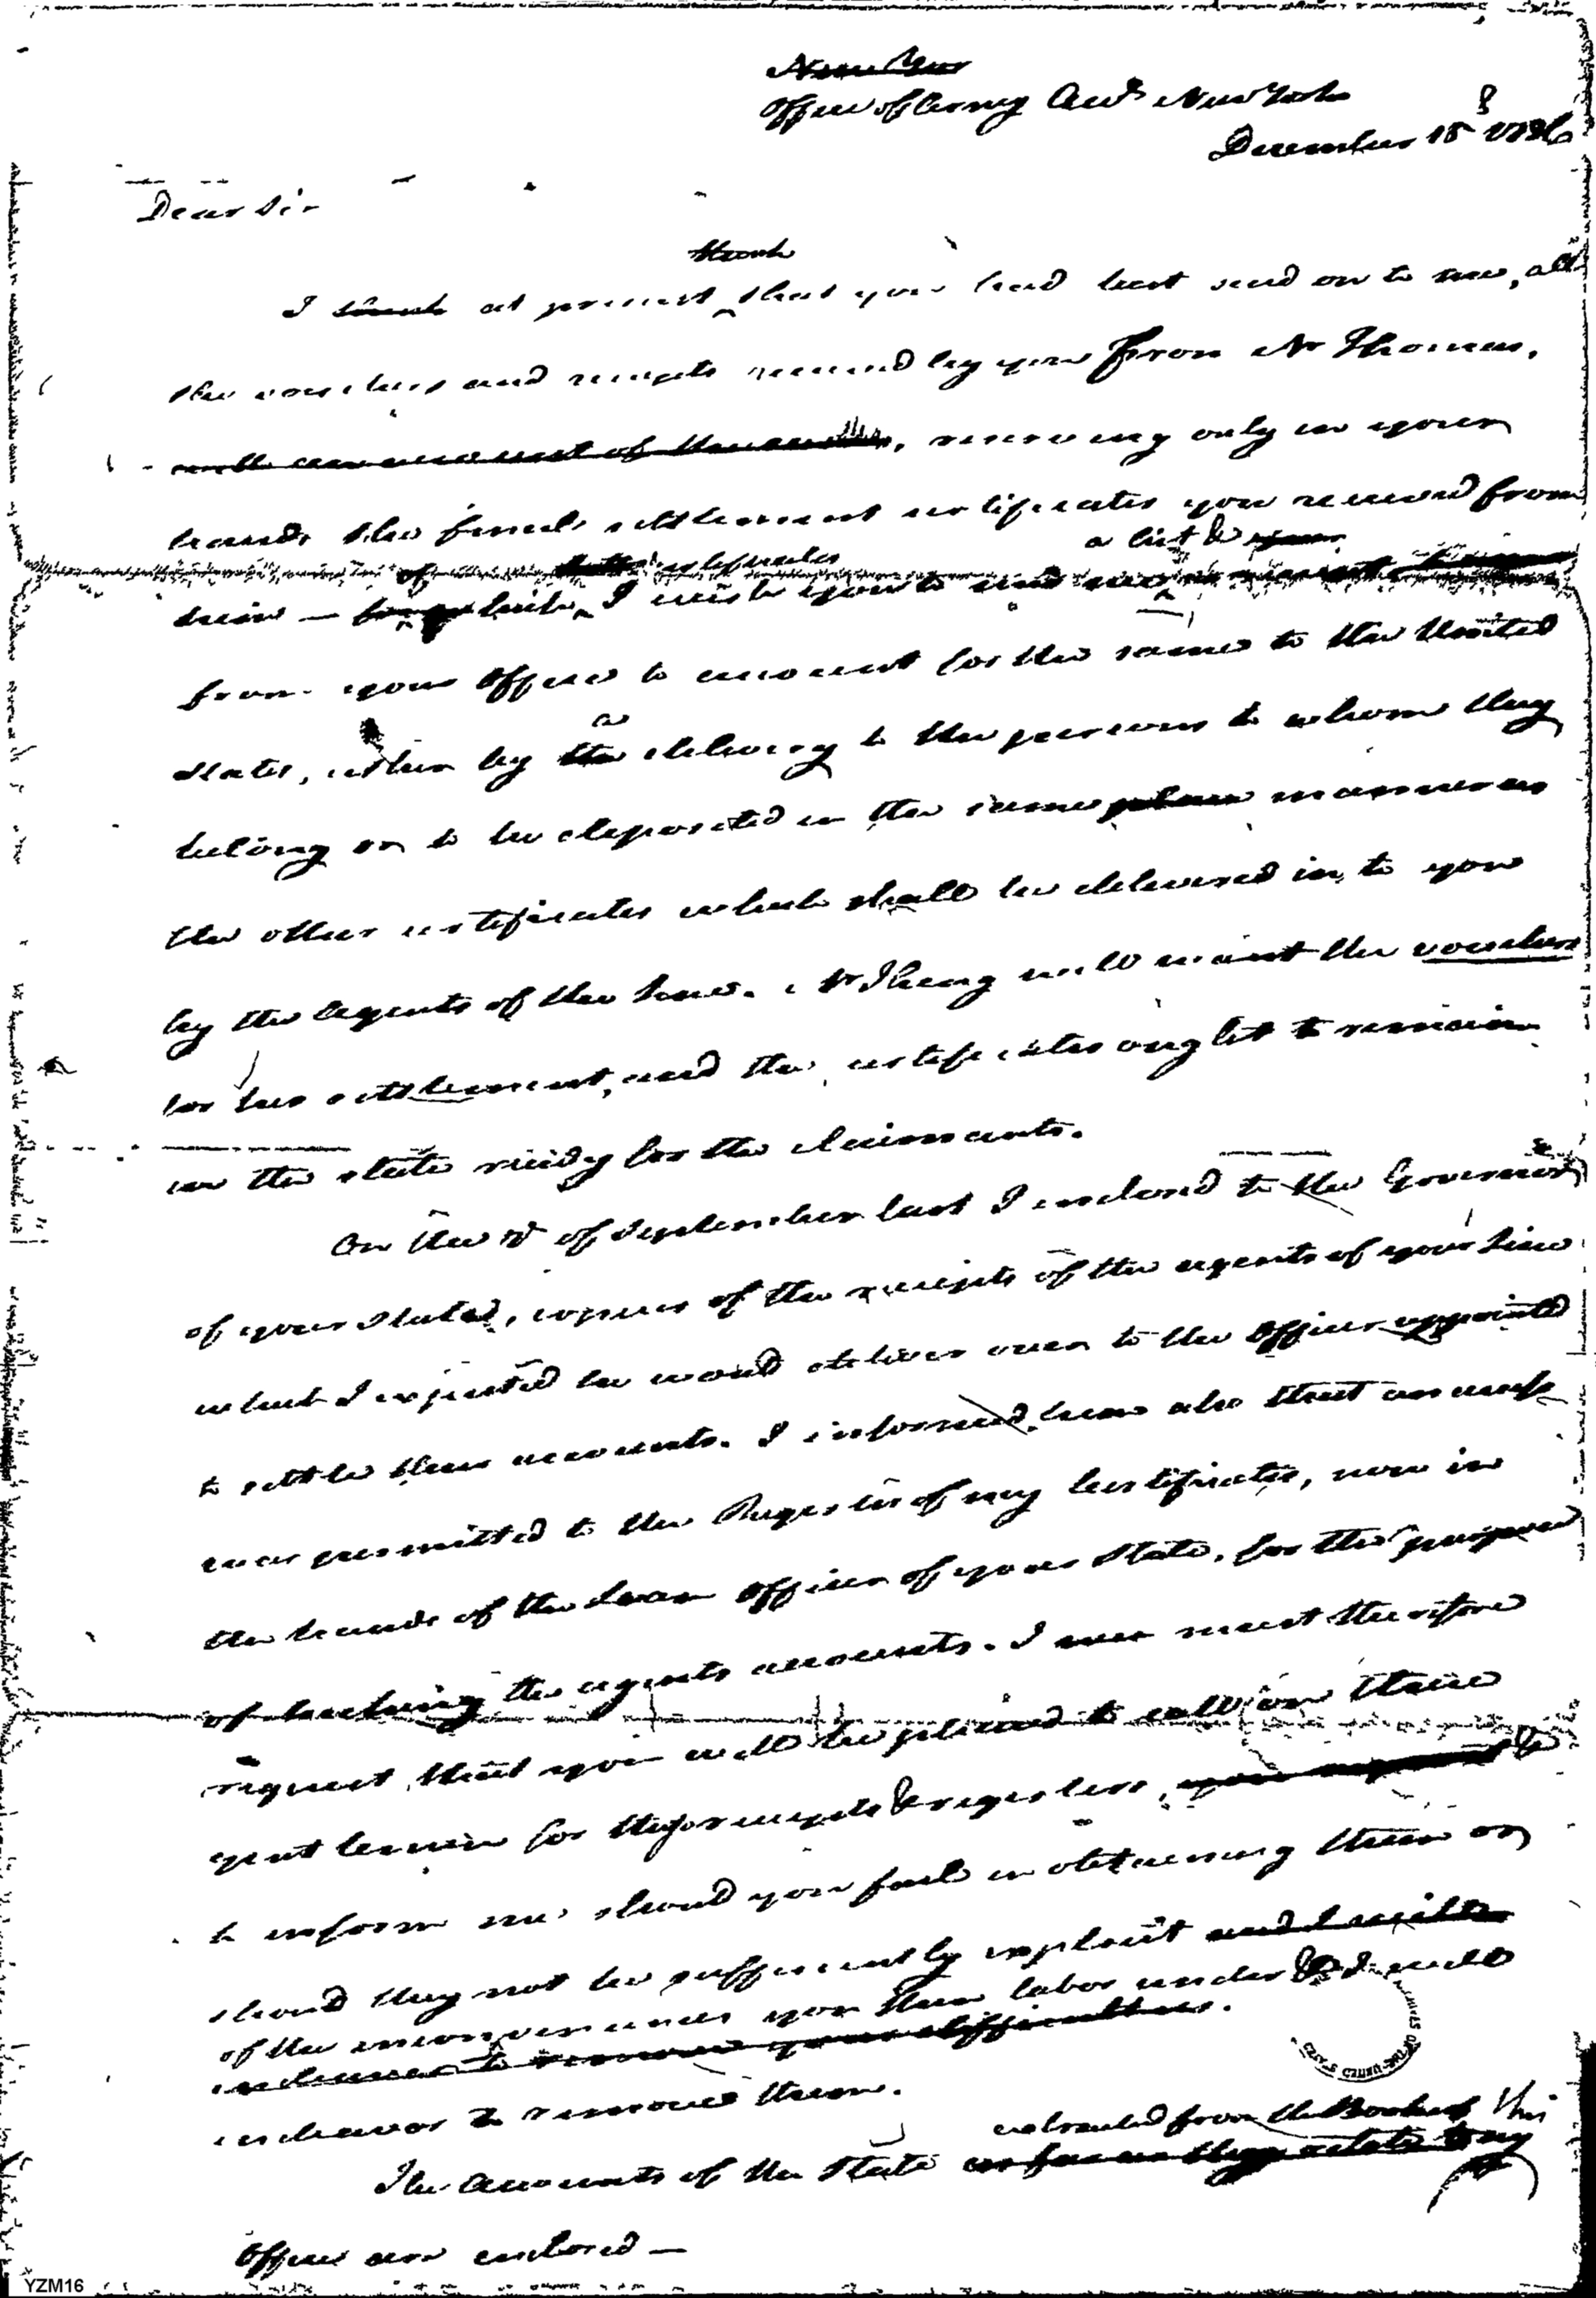 New Yor
Office of Army Accts New York
December 18 1786
Dear Sir
think
I think at present that you had best send on to me, all
the vouchers and receipts received by you from Mr Thomas,
with an account of the, reserving only in your
hands the final settlement certificates you received from
a list &
of certificates
him — which I wish you to send me
from your Office to account for the same to the United
a
States, either by the delivery to the persons to whom they
belong or to be deposited in the same place manner as
the other certificates which shall be delivered in, to you
by the Agents of the line. Mr will want the vouchers
for his settlement, and the certificates ought to remain
in the state ready for the claimants.
On the of September last I enclosed to the Governor
of your State, copies of the receipts of the agents of your line
which I expected he would deliver over to the Officer appointed
to settle their accounts. I informed him also that an
was permitted to the Register of my Certificates, now in
the hands of the Loan Officer of your State, for the purpose
of checking the agents accounts. I must therefore
request that you will be pleased to call on these
gentlemen for these receipts & registers, you &
to inform me should you fail in obtaining them or
should they not be sufficiently explicit and I will
of the inconveniences you then labor under & I will
endeavor to remove your difficulties.
endeavor to remove them.
extracted from the Books of this
The Accounts of the State as far as they relate to my
Office are enclosed —
YZM16